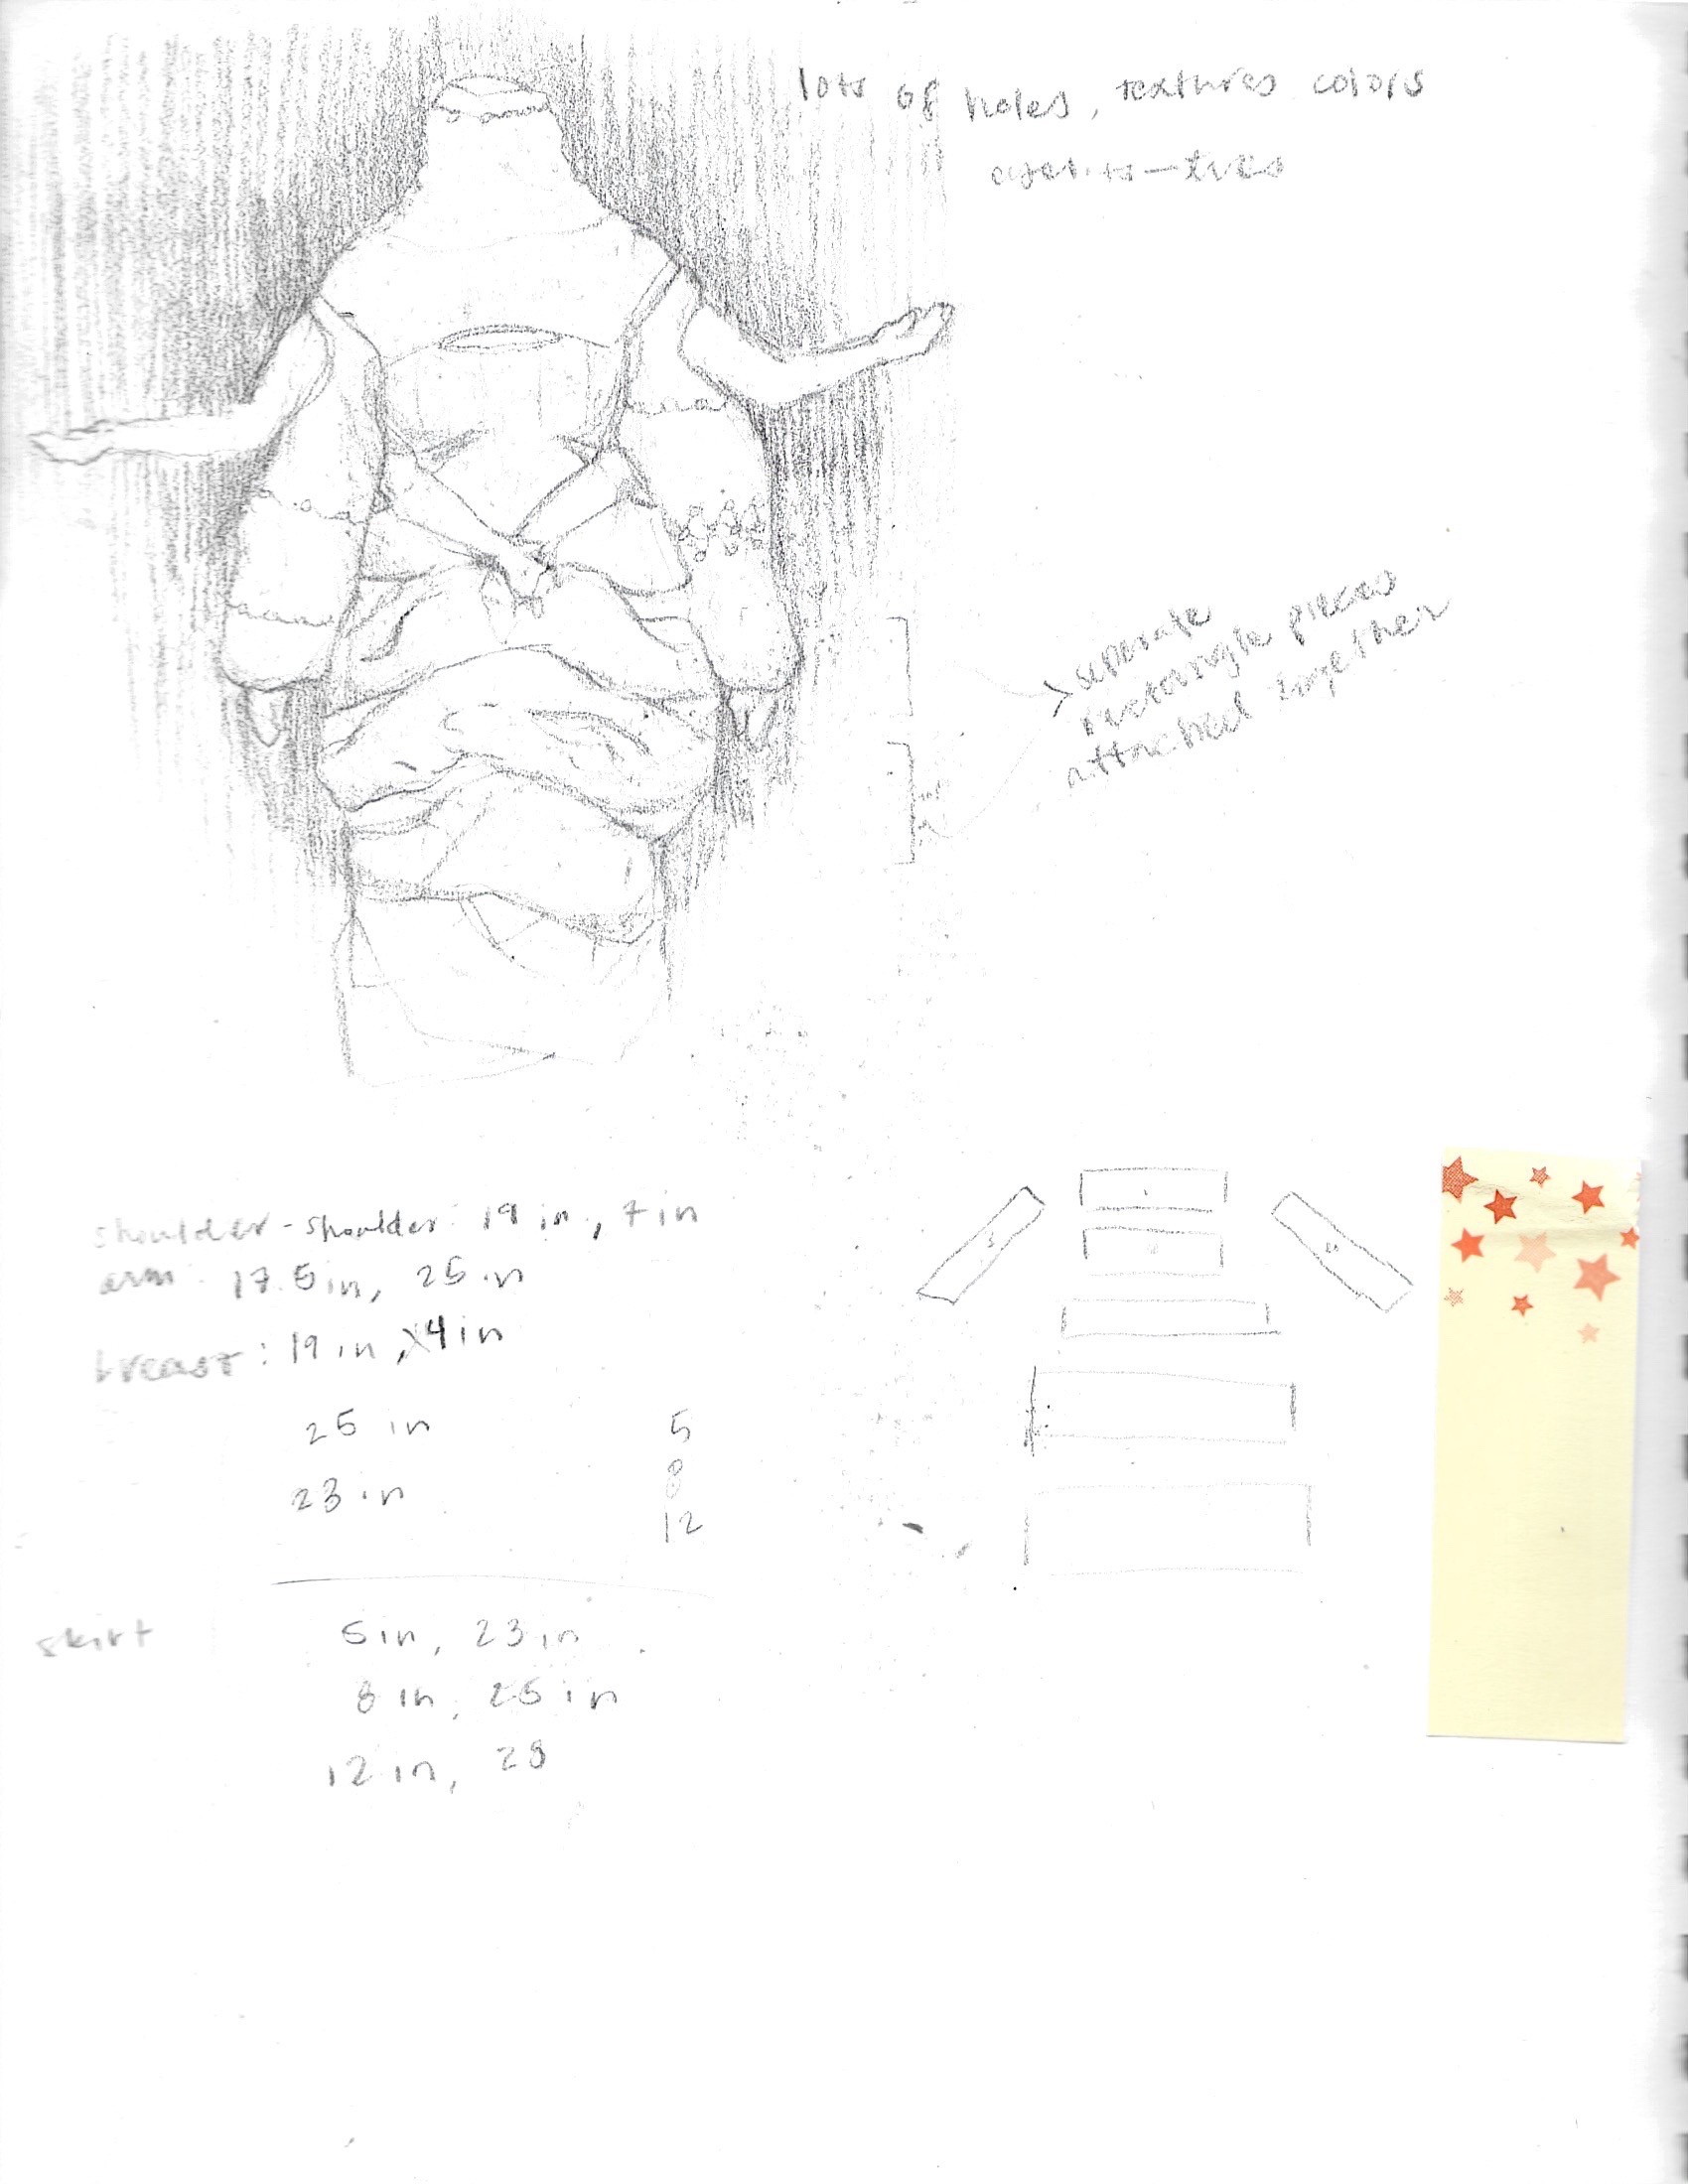 lots of holes, textures colors
eyelits — ties
separate
rectangle pieces
attached together
shoulder - shoulder: 19 in, 7 in
arm: 17.5 in, 25 in
breast: 19 in, x4 in
25 in 5
23 in 8
12
skirt 5 in, 23 in
8 in, 25 in
12 in, 28
1
2